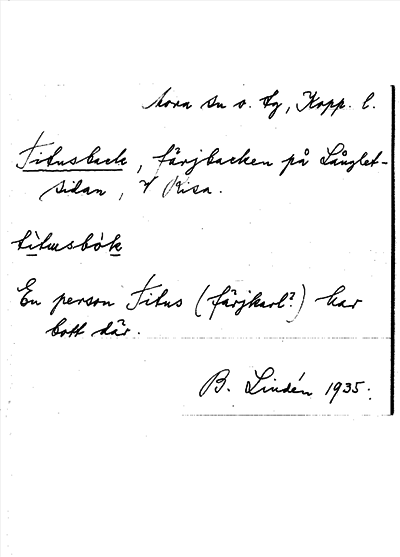 Mora sn o. tg, Kopp. l.
Titusback, färjbacken på Långlet-
sidan, V Risa.
tìtusbòk
En person Titus (färjkarl?) har
bott där.
B. Lindén 1935.